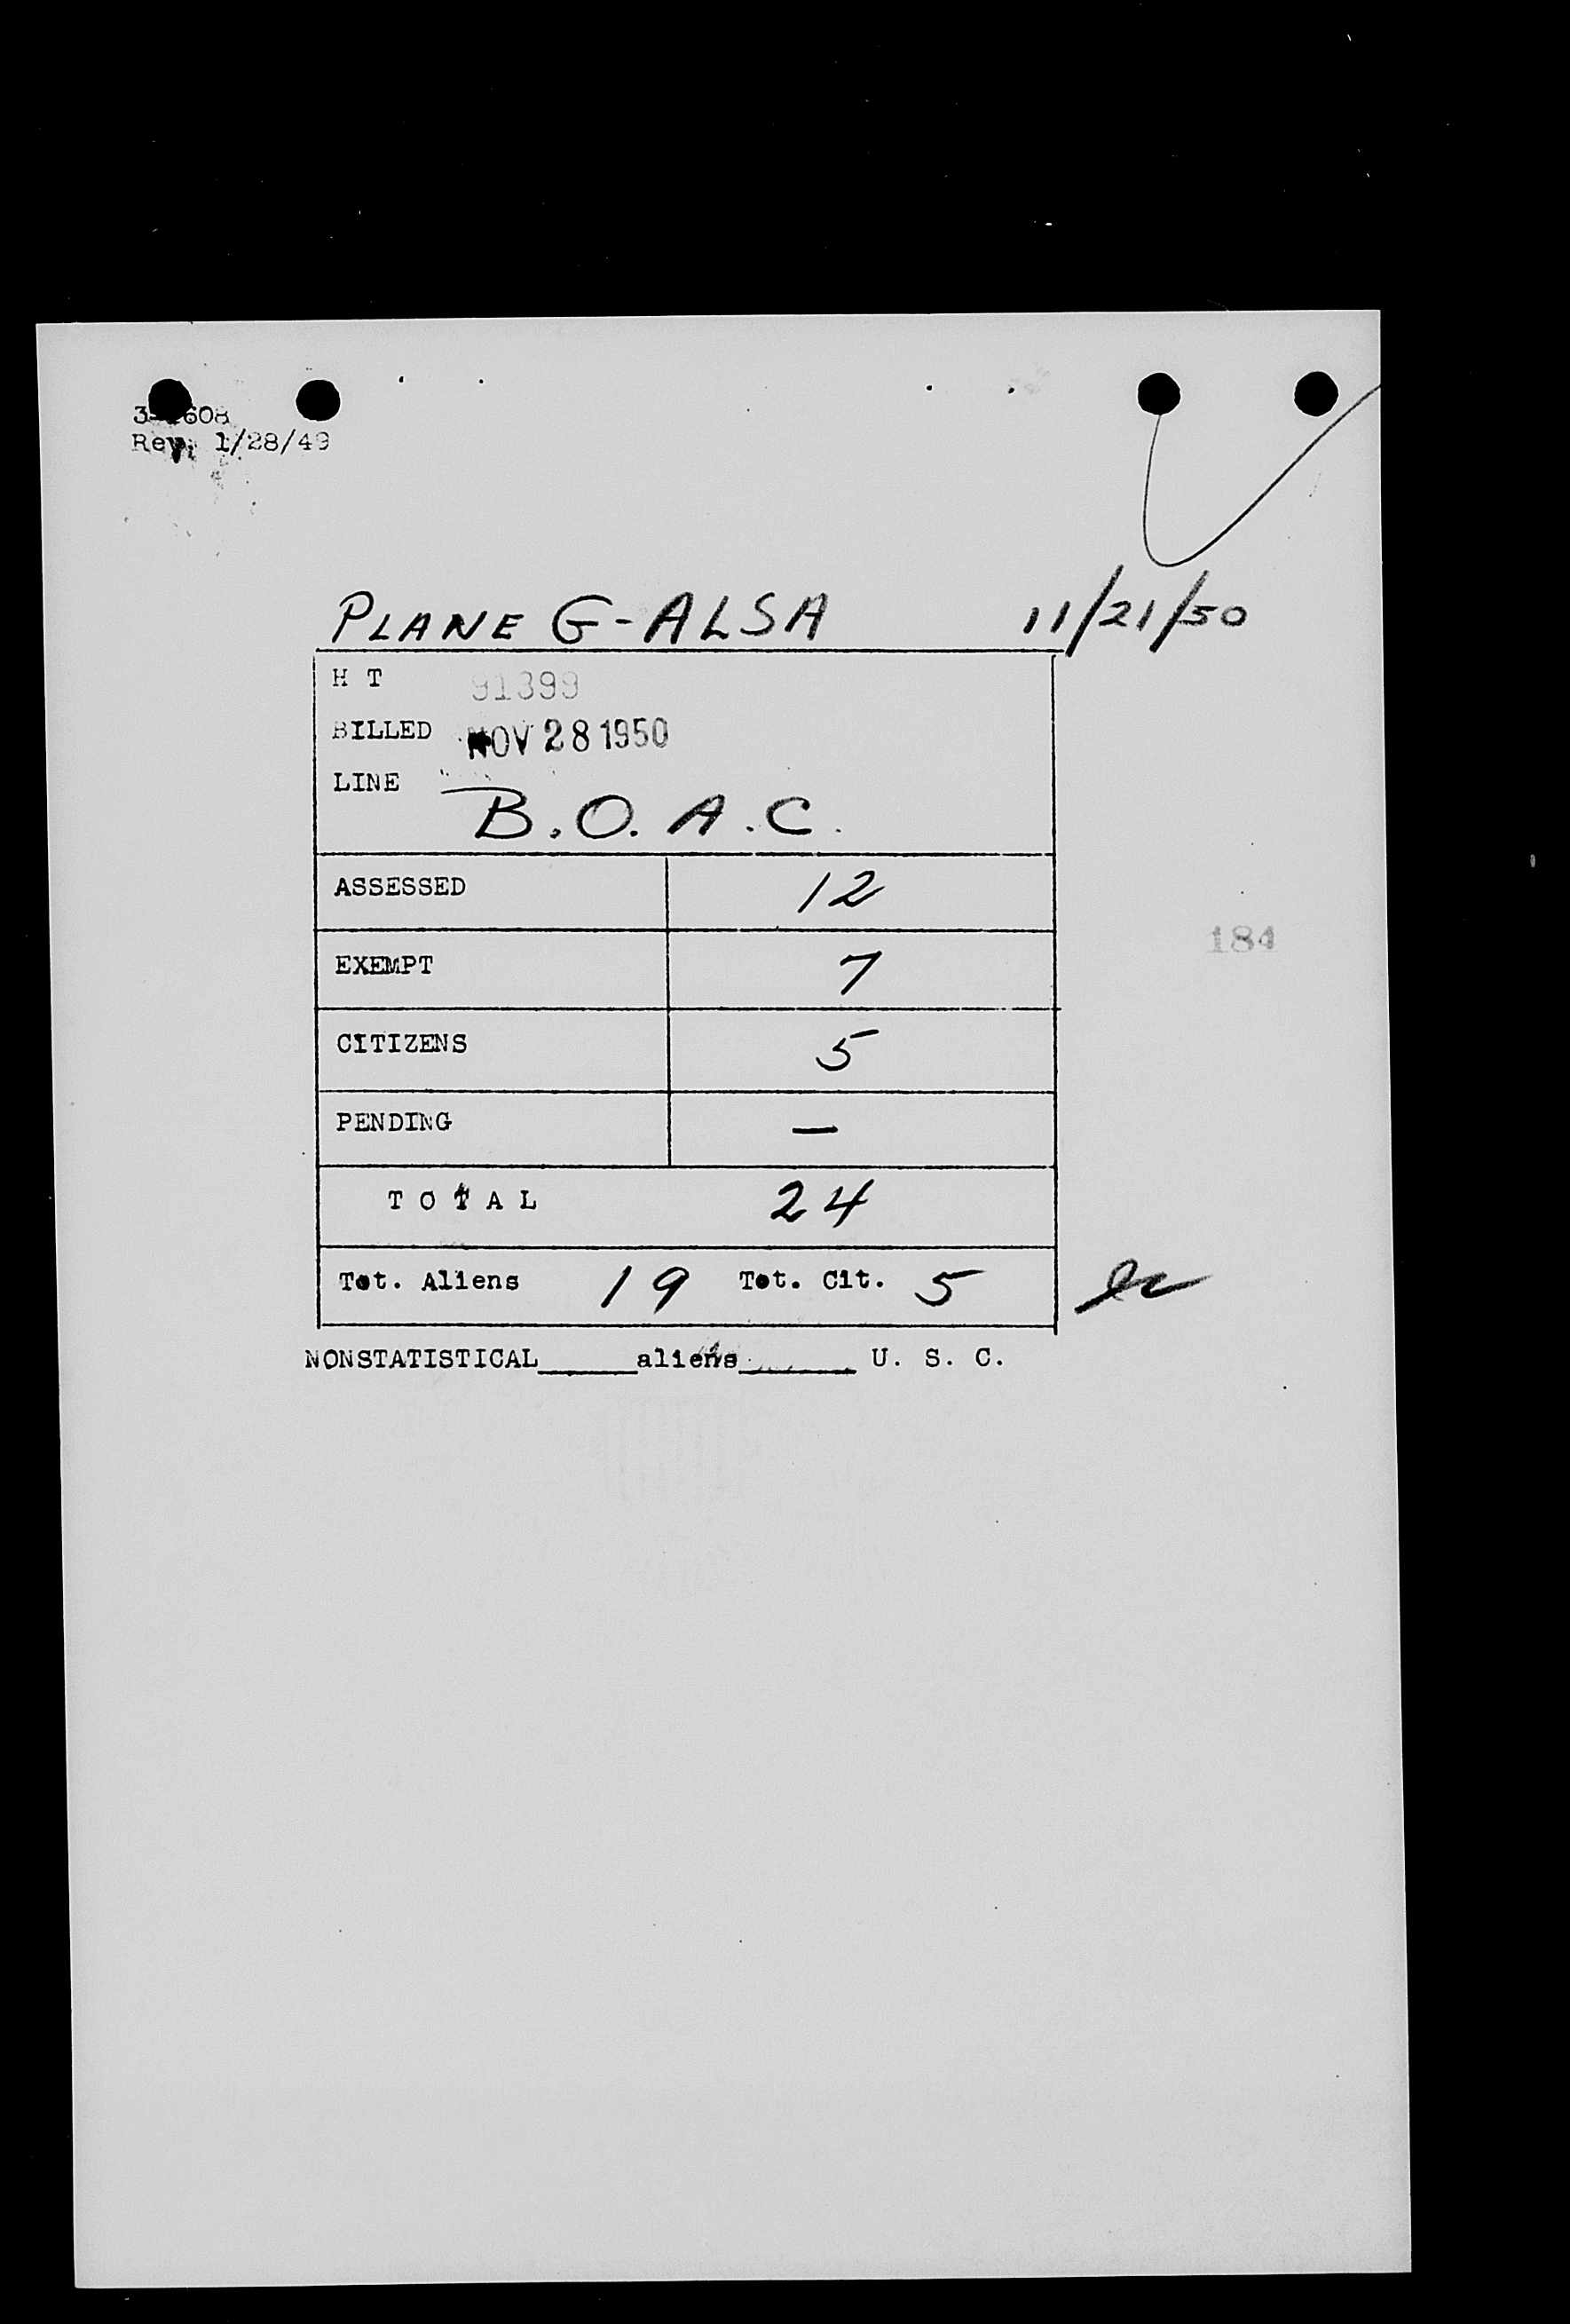 608
Rev. 1/28/49
PLANE G-ALSA 11/21/50
H T 91399
BILLED NOV 28 1950
LINE
B.O.A.C.
ASSESSED 12
184
EXEMPT 7
CITIZENS 5
PENDING —
TOTAL 24
Tot. Aliens 19 Tot. Cit. 5
NONSTATISTICAL______aliens_______ U. S. C.